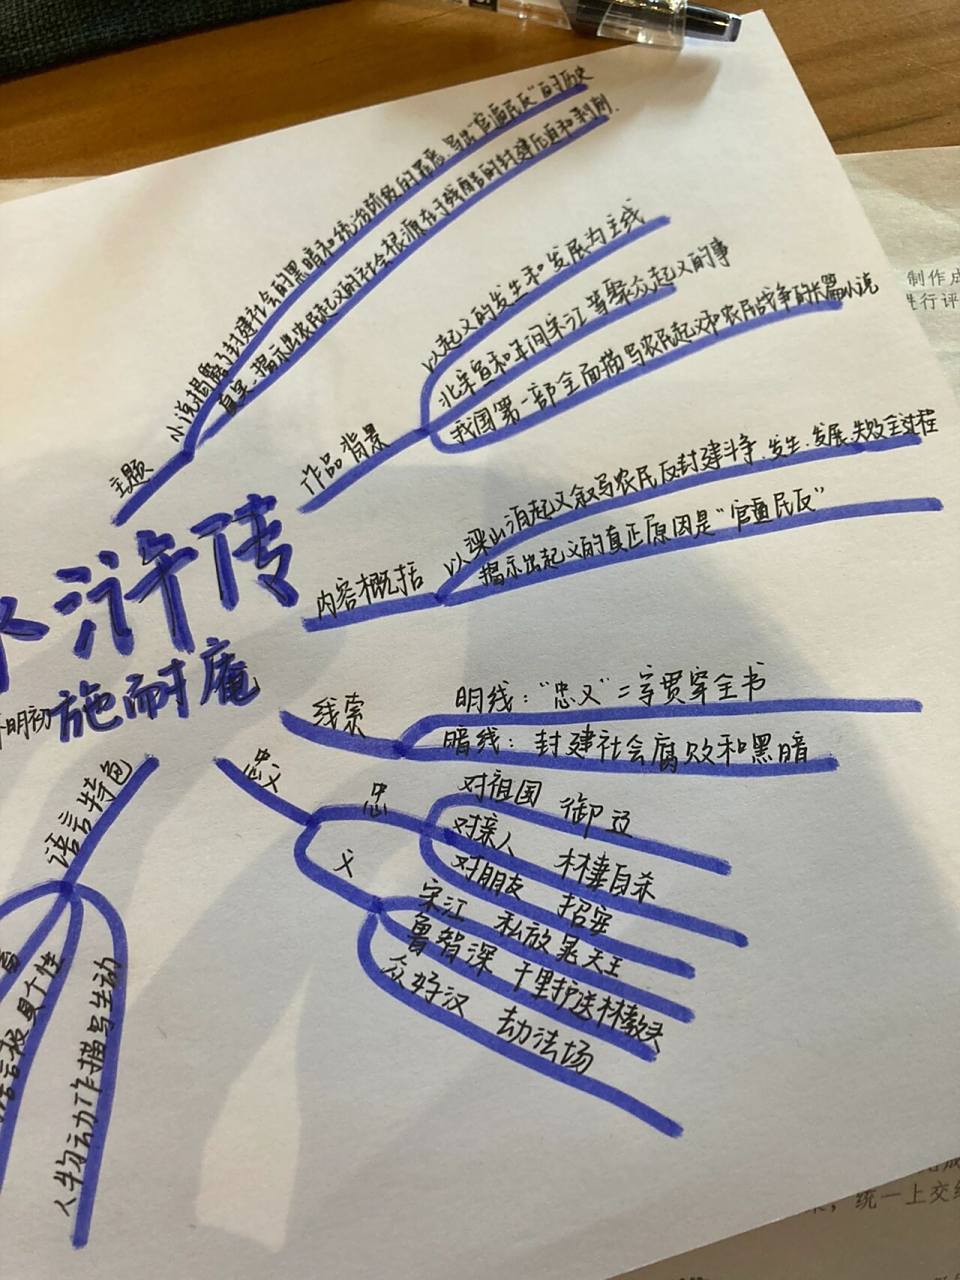 主题
小说揭露了封建社会的黑暗和统治阶级的罪恶、写出"官逼民反"的历史
真实、揭示出农民起义的社会根源在于残酷的封建压迫和剥削.
作品背景
以起义的发生和发展为主线
北宋宣和年间宋江等聚众起义的事
我国第一部全面描写农民起义和农民战争的长篇小说
内容概括
以梁山泊起义叙写农民反封建斗争、发生、发展、失败全过程
揭示出起义的真正原因是"官逼民反"
浒传
明初 施耐庵
线索
明线:"忠义"二字贯穿全书
暗线:封建社会腐败和黑暗
忠义
忠
对祖国 御辽
对亲人 林妻自杀
对朋友 招安
义
宋江 私放晁天王
鲁智深 千里护送林教头
众好汉 劫法场
语言特色
语言极具个性
人物动作描写生动
制作成
进行评
统一上交